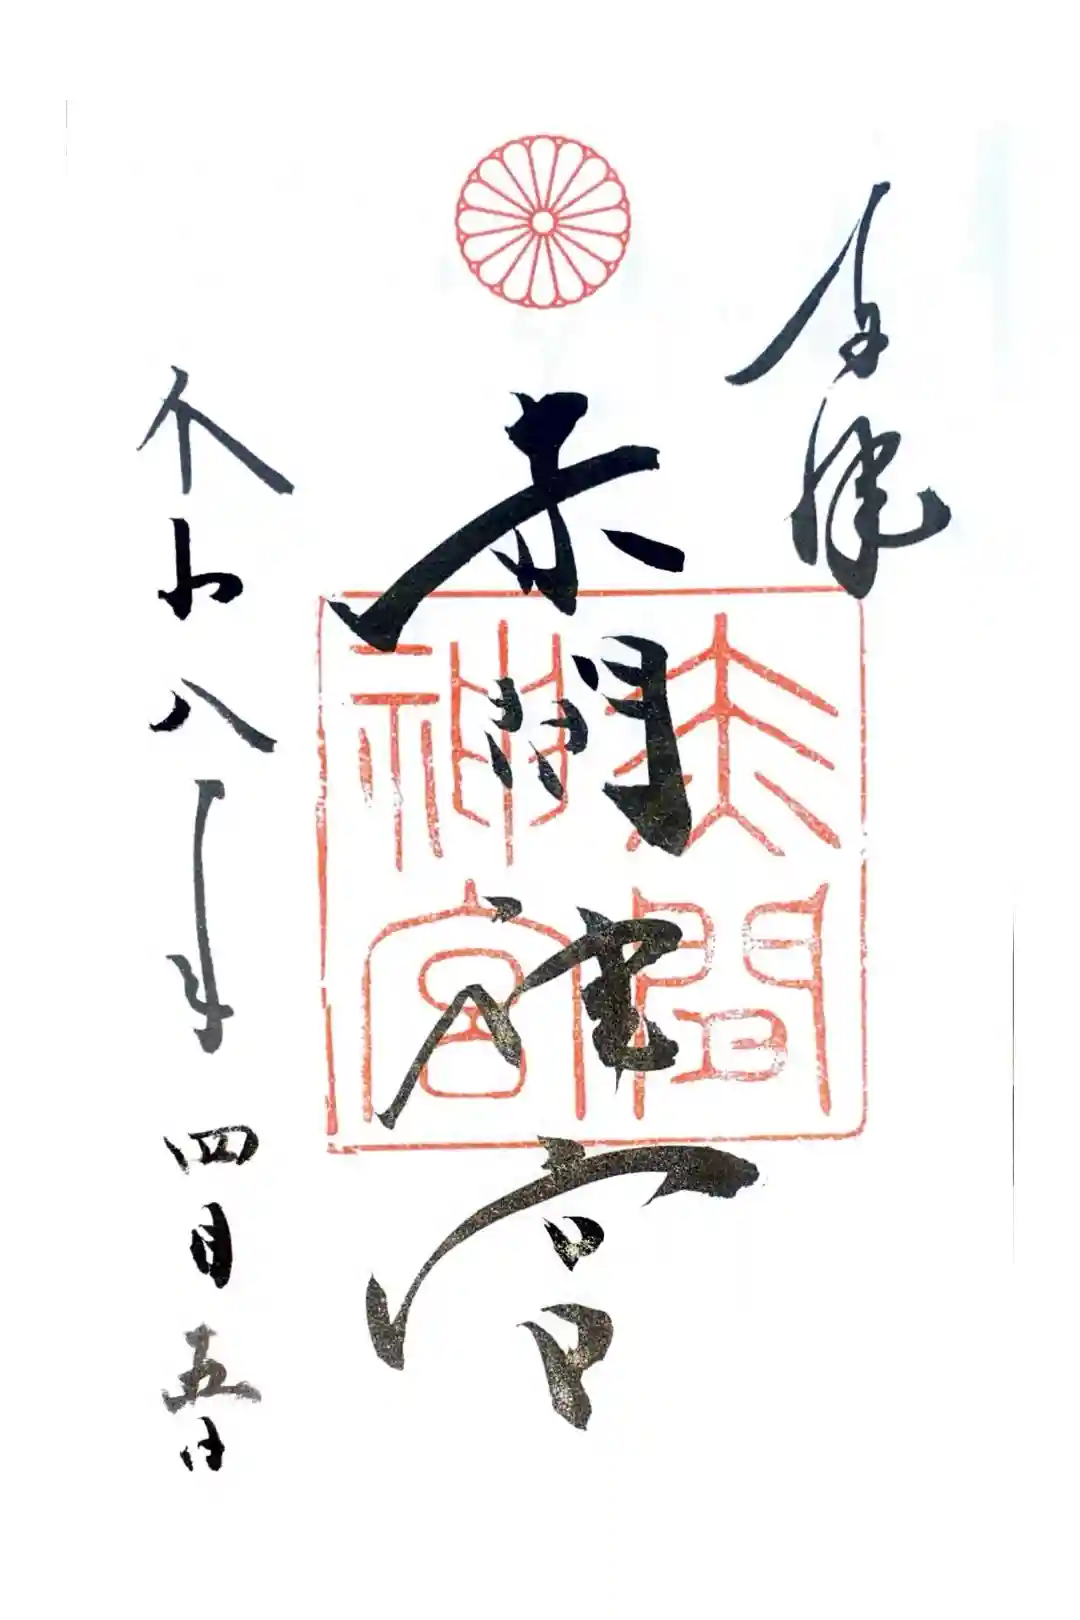 奉拝
赤間神宮
赤間
神宮
令和八年四月五日